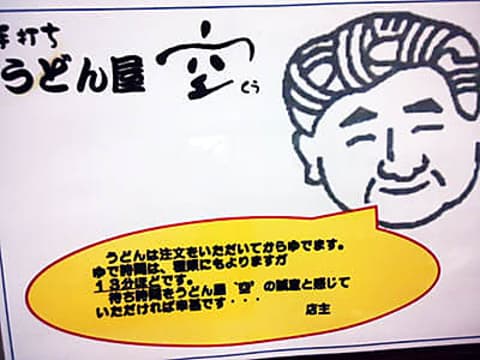 手打ち
うどん屋 空
くう
うどんは注文をいただいてからゆでます。
ゆで時間は、種類にもよりますが
13分ほどです。
待ち時間をうどん屋 空 の誠意と感じて
いただければ幸甚です・・・
店主